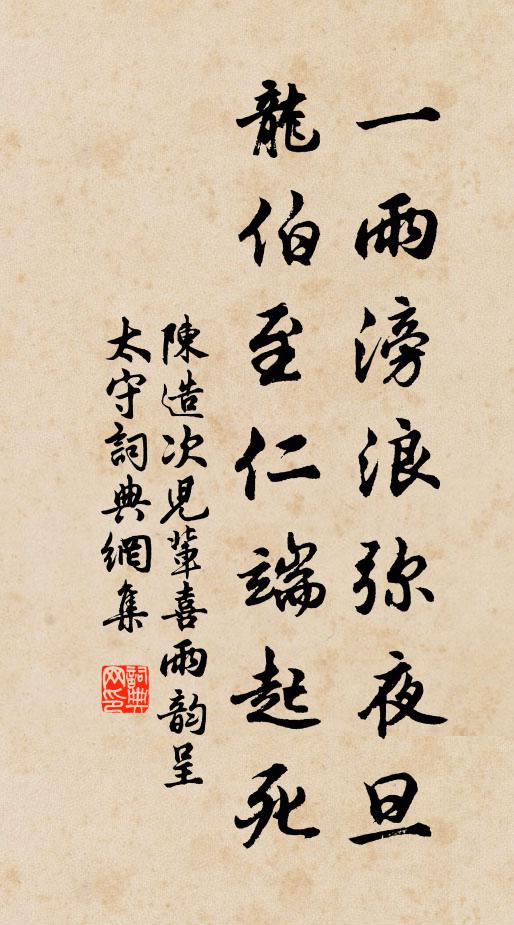 一雨滂浪弥夜旦
龍伯至仁端起死
陳造次兒輩喜雨韵呈
太守詞典網集
詞典网印